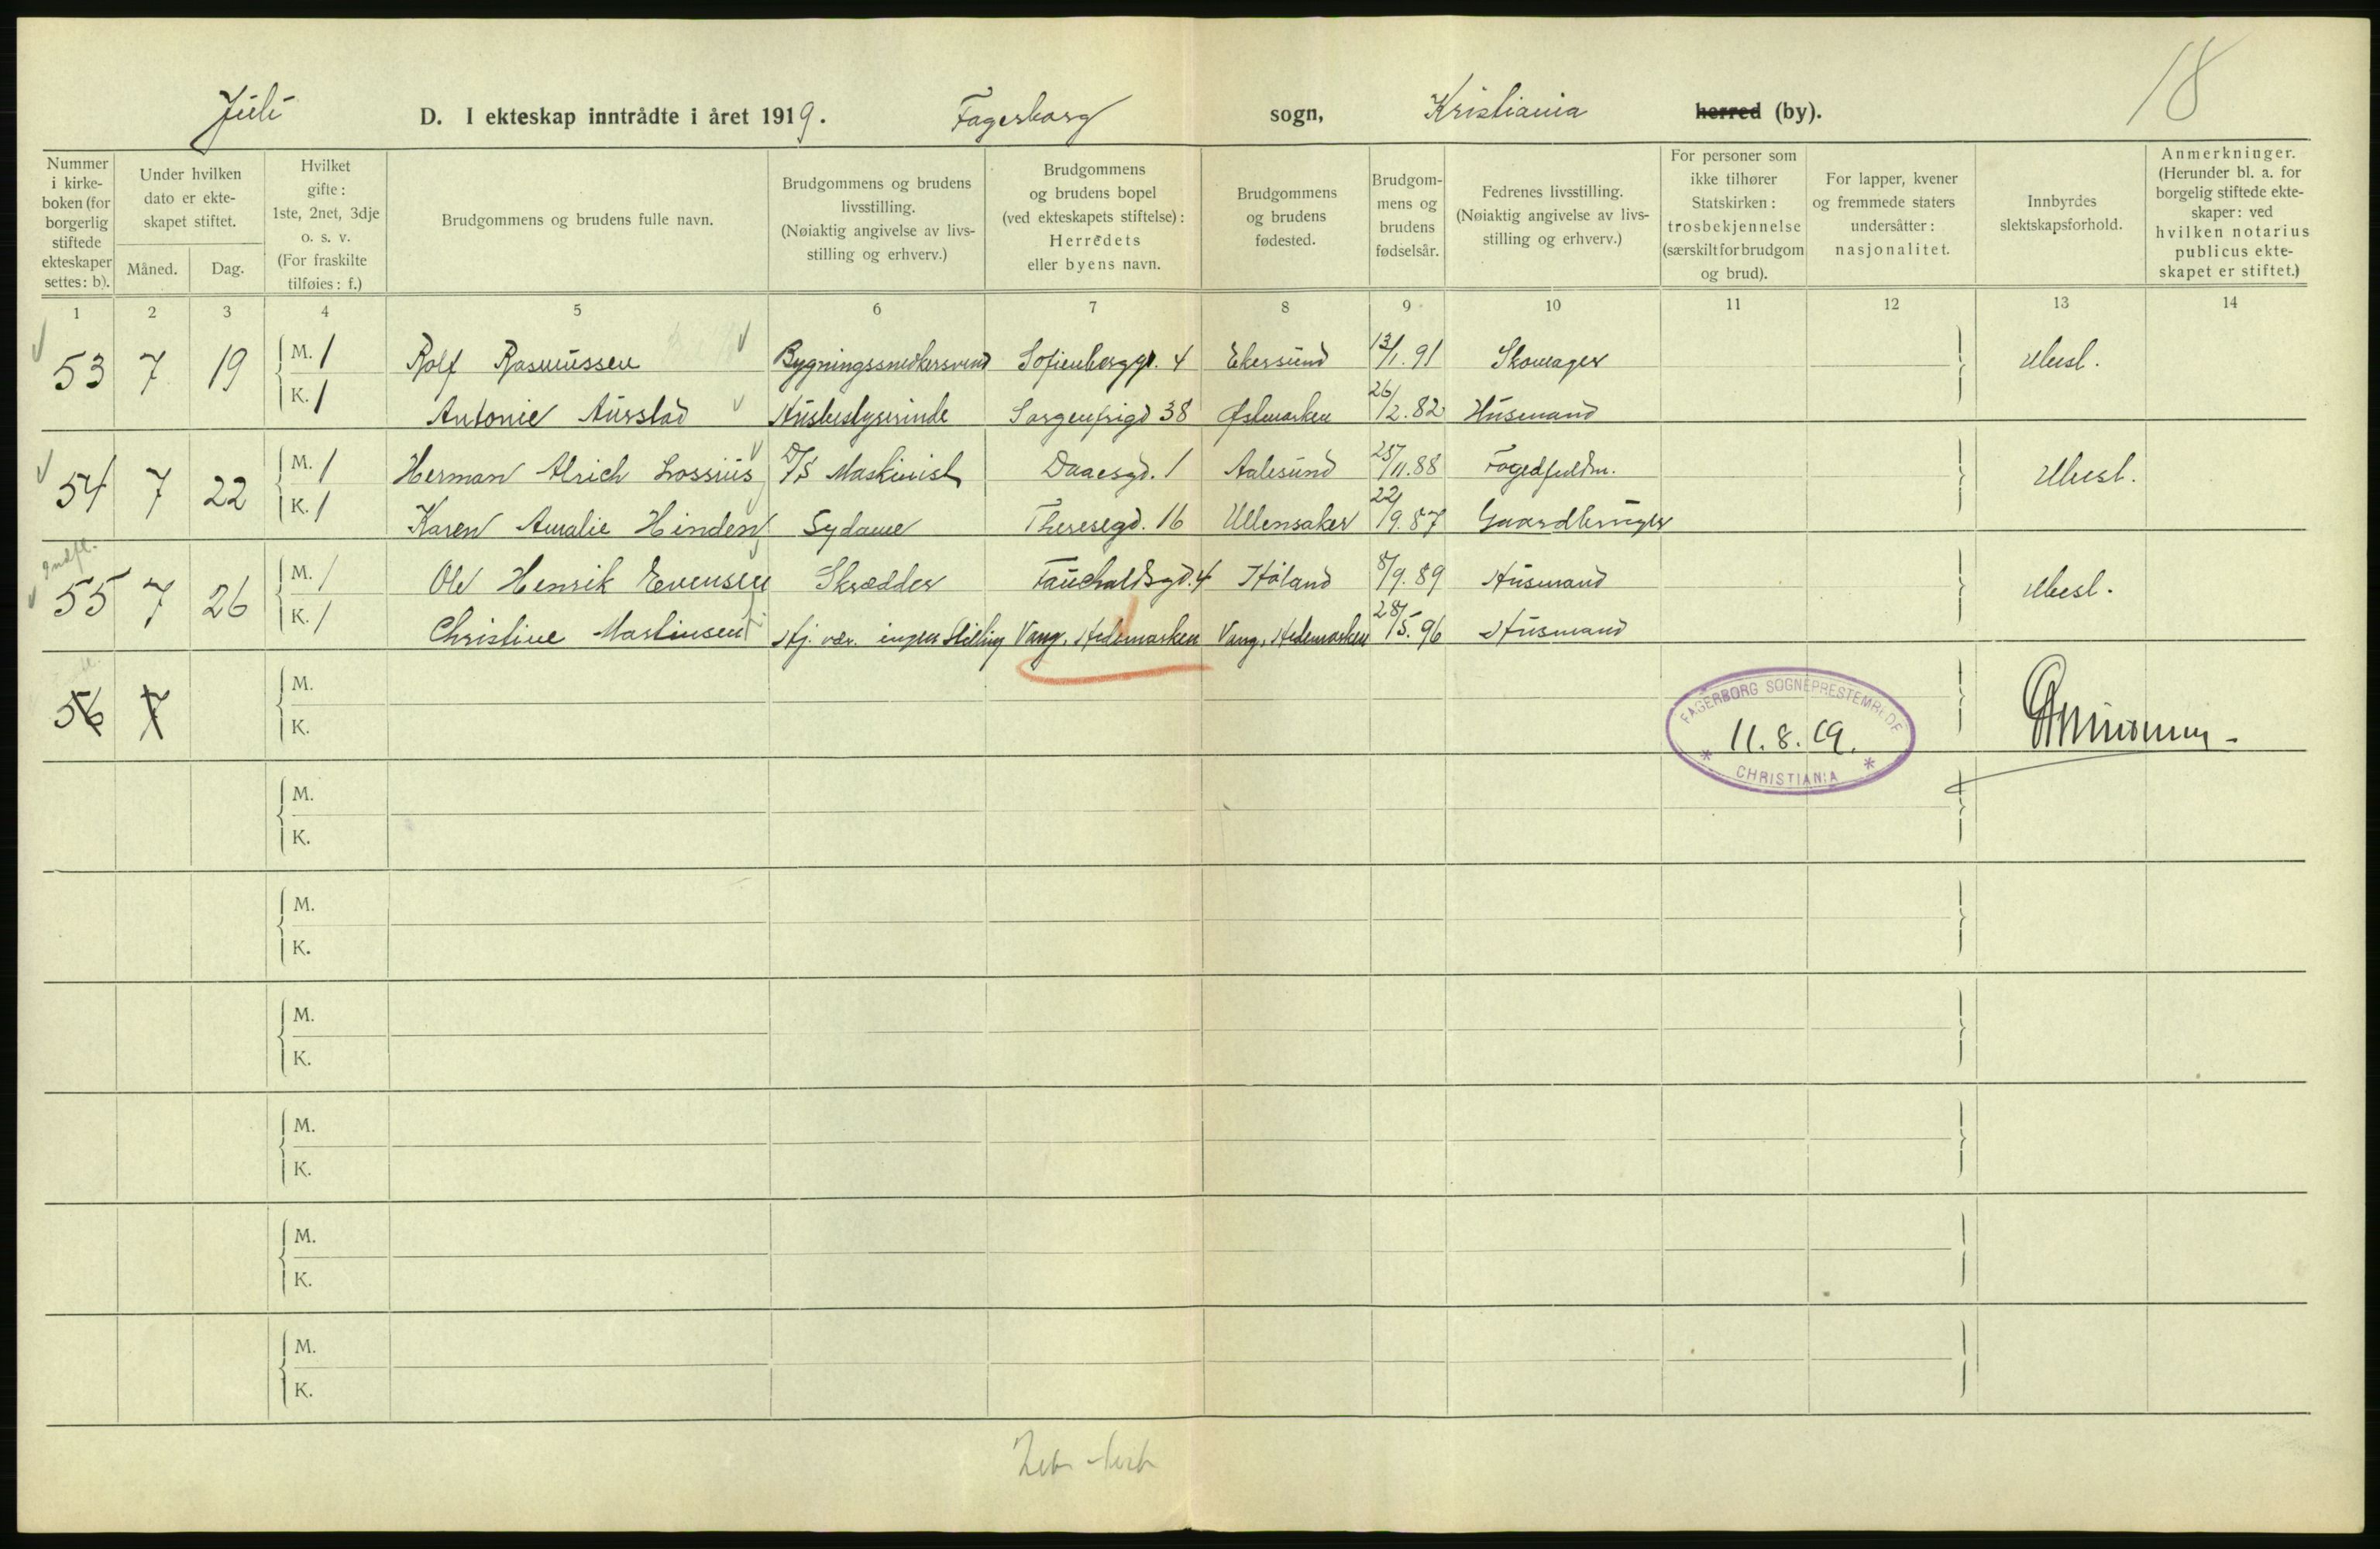 Juli D. I ekteskap inntrådte i året 1919. Fagerborg sogn, Kristiania herred (by). 18
Nummer i kirke-boken (for borgerlig stiftede ekteskaper settes: b).
Under hvilken dato er ekte-skapet stiftet.
Måned. Dag.
Hvilket gifte: 1ste, 2net, 3dje o. s. v. (For fraskilte tilføies: f.)
Brudgommens og brudens fulle navn.
Brudgommens og brudens livsstilling. (Nøiaktig angivelse av livs-stilling og erhverv.)
Brudgommens og brudens bopel (ved ekteskapets stiftelse): Herredets eller byens navn.
Brudgommens og brudens fødested.
Brudgom-mens og brudens fødselsår.
Fedrenes livsstilling. (Nøiaktig angivelse av livs-stilling og erhverv.)
For personer som ikke tilhører Statskirken: trosbekjennelse (særskilt for brudgom og brud).
For lapper, kvener og fremmede staters undersåtter: nasjonalitet.
Innbyrdes slektskapsforhold.
Anmerkninger. (Herunder bl. a. for borgelig stiftede ekte-skaper: ved hvilken notarius publicus ekte-skapet er stiftet.)
1 2 3 4 5 6 7 8 9 10 11 12 13 14
53 7 19 M. 1 Rolf Rasmussen Bygningssnedkersvend Sofienberggt. 4 Ekersund 13/1. 91 Skomager Ubesl.
K. 1 Antonie Aurstad Husbestyrerinde Sorgenfrigd 38 Østmarken 26/2. 82 Husmand
54 7 22 M. 1 Herman Ulrich Lossius D/S Maskinist Daaesgd. 1 Aalesund 25/11. 88 Fogedfuldm. Ubesl.
K. 1 Karen Amalie Hinden Sydame Theresegd. 16 Ullensaker 22/9. 87 Gaardbruger
Indfl.
55 7 26 M. 1 Ole Henrik Evensen Skrædder Fauchaldsgd. 4 Høland 8/9. 89 Husmand Ubesl.
K. 1 Christine Martinsen Hj. vær. ingen Stilling Vang, Hedemarken Vang, Hedemarken 28/5. 96 Husmand
56 7 M.
K.
FAGERBORG SOGNEPRESTEMBEDE
11. 8. 19.
* CHRISTIANIA *
M.
K.
M.
K.
M.
K.
M.
K.
M.
K.
M.
K.